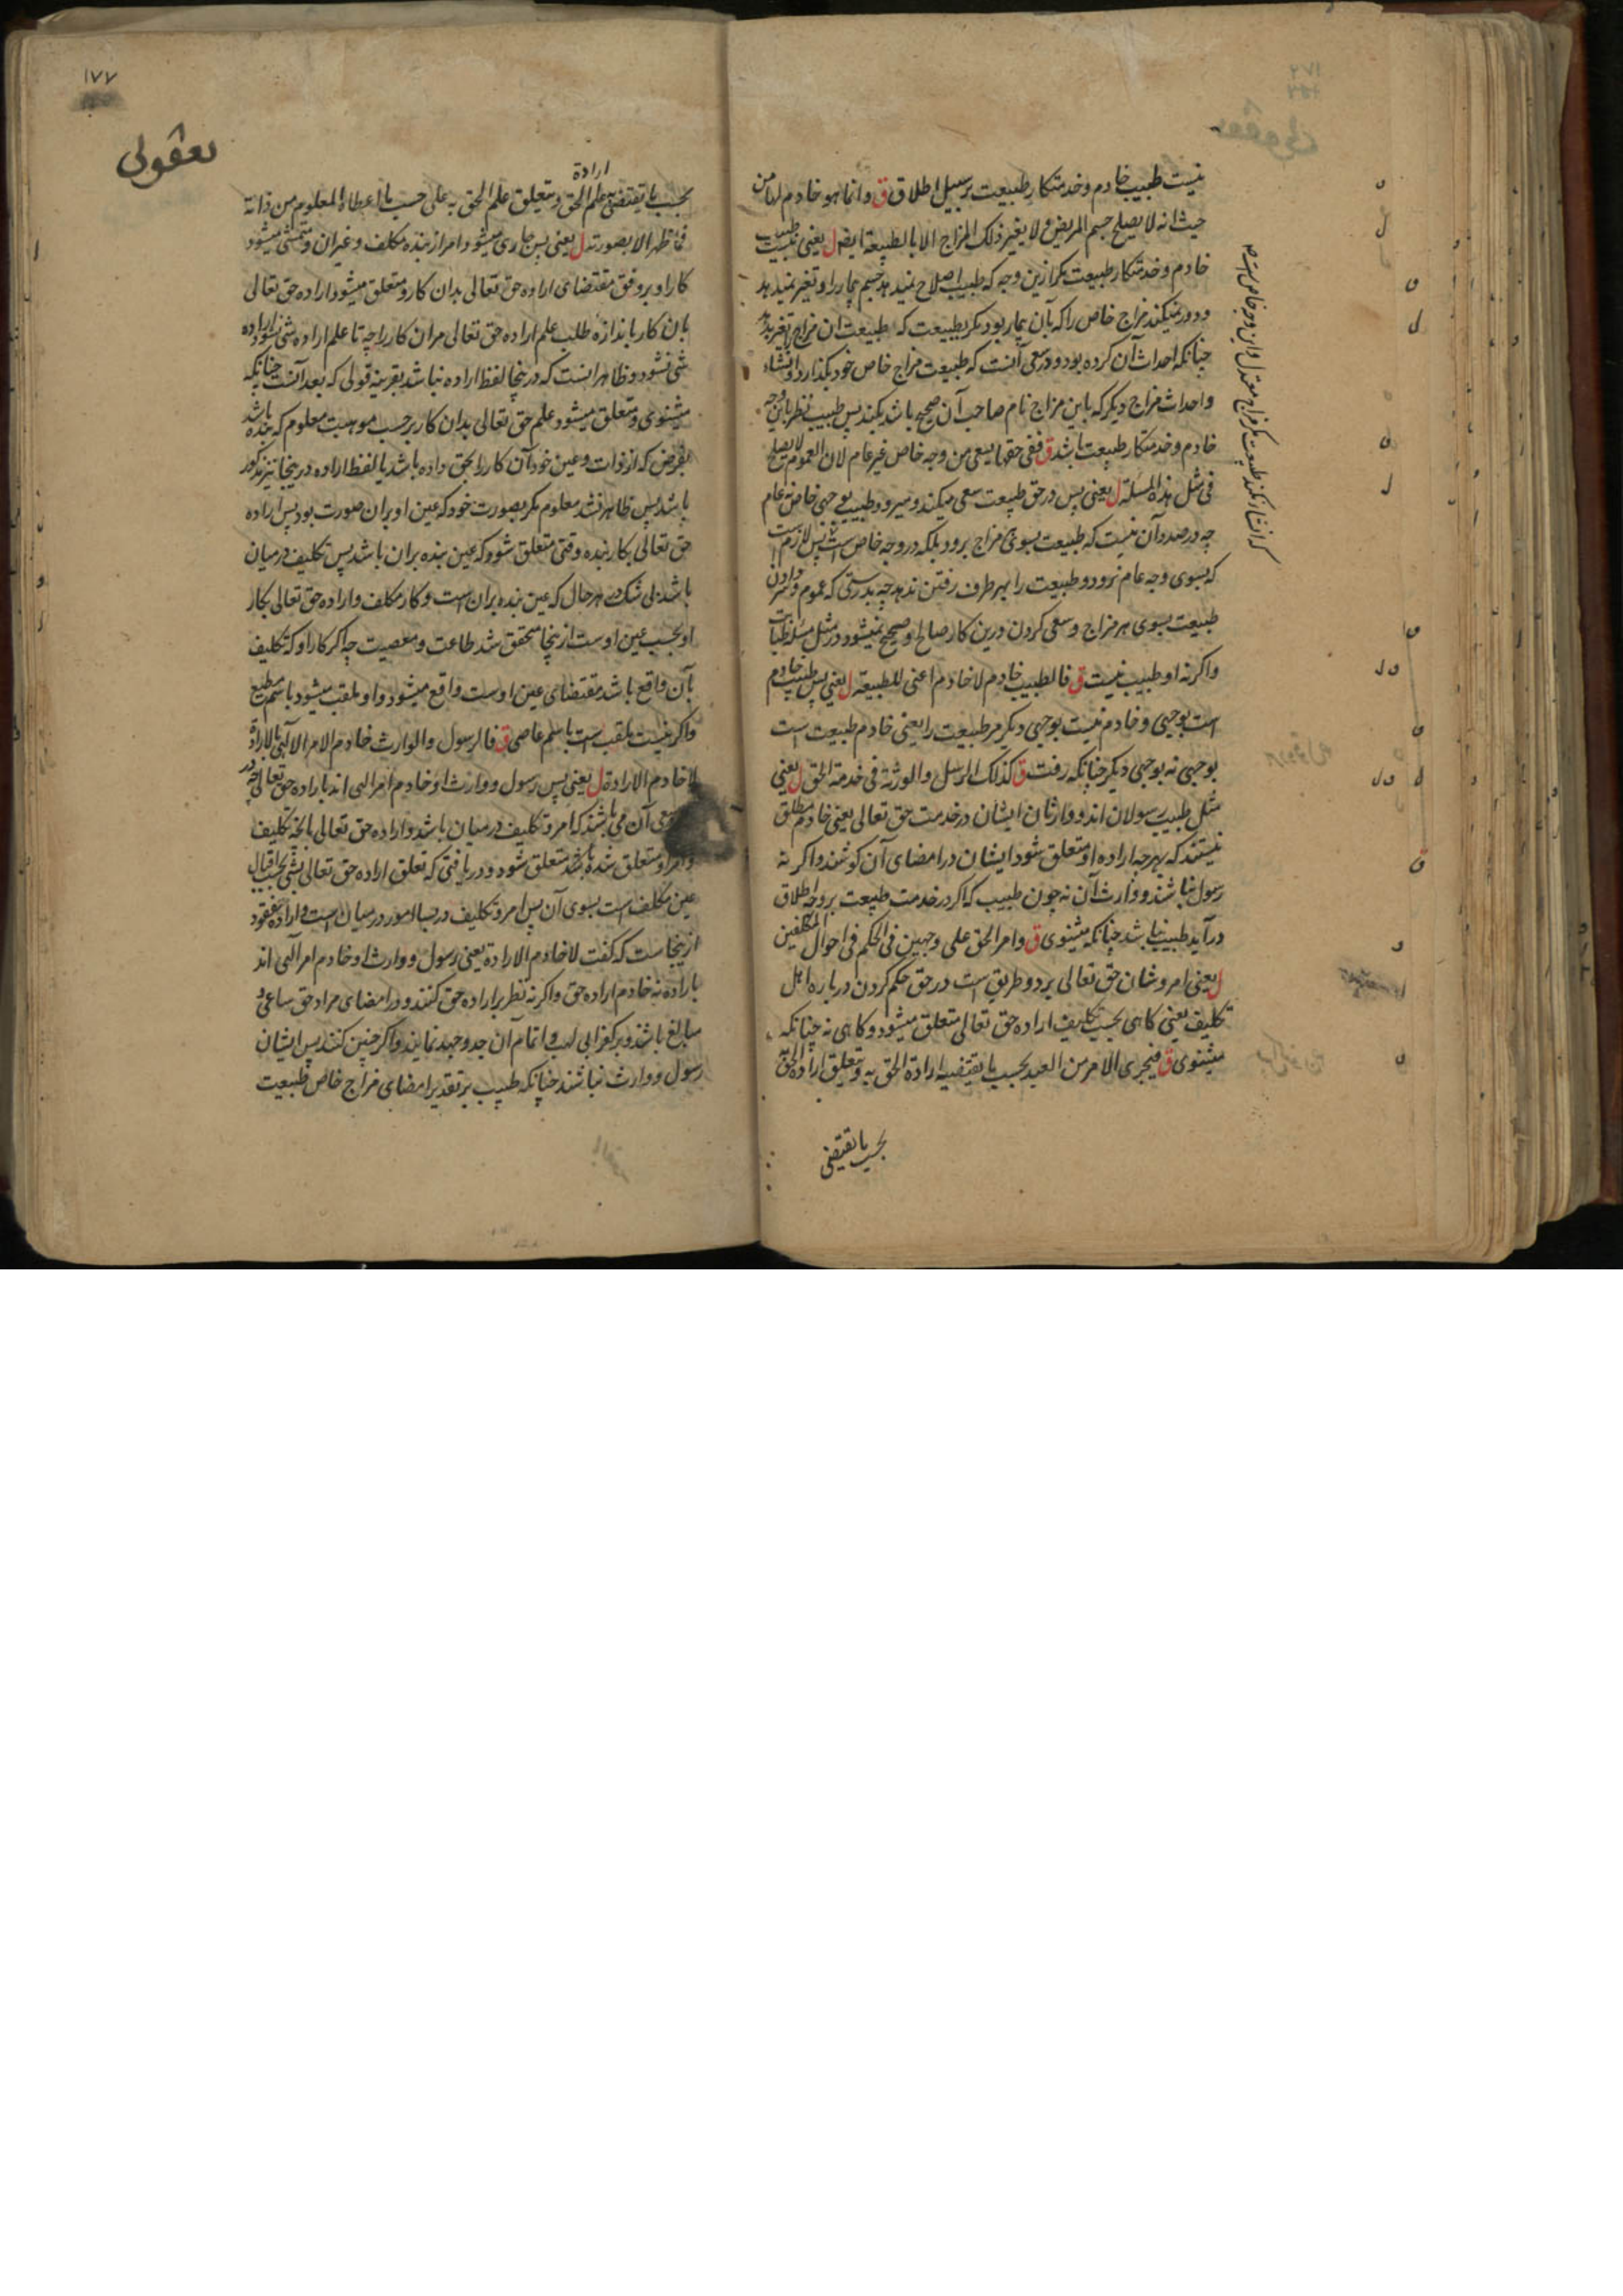 نیست طبیب خادم و خدمتکار طبیعت بر سبیل اطلاق ق وانما هو خادم لها من
حیث انه لا یصلح جسم المریض و لا یغیر ذلک المزاج الا بالطبیعة ایضا ل یعنی نیست طبیب
خادم و خدمتکار طبیعت مکر ازین وجه که طبیب اصلاح نمیدهد جسم بیمار را و تغیر نمیدهد
و دور نمیکند مزاج خاص را که بآن بیمار بود مکر بطبیعت که طبیعت آن مزاج را تغیر بدهد
چنانکه احداث آن کرده بود و در سعی آنست که طبیعت مزاج خاص خود بکذارد و انشاء
و احداث مزاج دیکر که باین مزاج نام صاحب آن صحیح باشد بکند پس طبیب نظر باین وجه
خادم و خدمتکار طبیعت باشد ق ففی حقها یسعی من وجه خاص غیر عام لان العموم لا یصلح
فی مثل هذه المسئلة ل یعنی پس در حق طبیعت سعی میکند و میرود طبیب بوجهی خاص نه عام
چه در صدد آن نیست که طبیعت بسوی مزاج برود بلکه در وجه خاص است پس لازم است
که بسوی وجه عام نرود و طبیعت را بهر طرف رفتن ندهد چه بدرستی که عموم و سر دادن
طبیعت بسوی هر مزاج و سعی کردن درین کار صالح و صحیح نمیشود در مثل مسئله طبابت
واکر نه او طبیب نیست ق فالطبیب خادم لا خادم اعنی للطبیعة ل یعنی پس طبیب خادم
است بوجهی و خادم نیست بوجهی دیکر مر طبیعت را یعنی خادم طبیعت است
بوجهی نه بوجهی دیکر چنانکه رفت ق کذلک الرسل والورثة فی خدمة الحق ل یعنی
مثل طبیب رسولان اند و وارثان ایشان در خدمت حق تعالی یعنی خادم مطلق
نیستند که بهر چه اراده او متعلق شود ایشان در امضای آن کوشند واکر نه
رسول نباشند و وارث آن نه چون طبیب که اکر در خدمت طبیعت بر وجه اطلاق
درآید طبیب نباشد چنانکه میشنوی ق وامر الحق علی وجهین فی الحکم فی احوال المکلفین
ل یعنی امر و شان حق تعالی بر دو طریق است در حق حکم کردن درباره اهل
تکلیف یعنی کاهی بحسب تکلیف اراده حق تعالی متعلق میشود و کاهی نه چنانکه
میشنوی ق فیجری الامر من العبد بحسب ما یقتضیه ارادة الحق به و یتعلق ارادة الحق به
بحسب ما یقتضی
١٧٧
ارادة
بحسب ما یقتضی به علم الحق و یتعلق علم الحق به علی حسب ما اعطاه المعلوم من ذاته
فما ظهر الا بصورته ل یعنی پس جاری میشود امر از بنده مکلف و غیر آن و متمشی میشود
کار او بر وفق مقتضای اراده حق تعالی بدان کار و متعلق میشود اراده حق تعالی
بآن کار باندازه طلب علم اراده حق تعالی مر آن کار را چه تا علم اراده شی نشود اراده
شی نشود و ظاهر انست که درینجا لفظ اراده نباشد بقرینه قولی که بعد آنست چنانکه
میشنوی و متعلق میشود علم حق تعالی بدان کار بر حسب موهبت معلوم که بنده باشد
بفرض که از ذات و عین خود آن کار را بحق داده باشد یا لفظ اراده درینجا نیز مذکور
باشد پس ظاهر نشد معلوم مکر بصورت خود که عین او بران صورت بود پس اراده
حق تعالی بکار بنده وقتی متعلق شود که عین بنده بران باشد پس تکلیف درمیان
باشد بلی شک در هر حال که عین بنده بران است و کار مکلف و اراده حق تعالی بکار
او بحسب عین اوست ازینجا محقق شد طاعت و معصیت چه اکر کار او که تکلیف
بآن واقع باشد مقتضای عین اوست واقع میشود و او ملقب میشود باسم مطیع
واکر نیست ملقب است باسم عاصی ق فالرسول والوارث خادم الامر الالهی بالارادة
لا خادم الارادة ل یعنی پس رسول و وارث او خادم امر الهی اند باراده حق تعالی چه در
سعی آن می باشند که امر و تکلیف درمیان باشد و اراده حق تعالی بآنچه تکلیف
و امر او متعلق شده باشد متعلق شود و دریافتی که تعلق اراده حق تعالی بشی بحسب اقبال
عین مکلف است بسوی آن پس امر و تکلیف در بسا امور درمیان است و اراده مفقود
ازینجاست که کفت لا خادم الارادة یعنی رسول و وارث او خادم امر الهی اند
باراده نه خادم اراده حق واکر نه نظر بر اراده حق کنند و در امضای مراد حق ساعی و
مبالغ باشند و بر کفر ابی لهب و اتمام آن جد و جهد نمایند واکر چنین کنند پس ایشان
رسول و وارث نباشند چنانکه طبیب بر تقدیر امضای مزاج خاص طبیعت